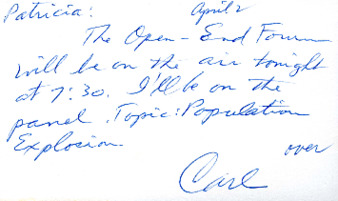 Patricia: April 2
The Open-End Forum
will be on the air tonight
at 7:30. I'll be on the
panel. Topic: Population
Explosion.
over
Carl